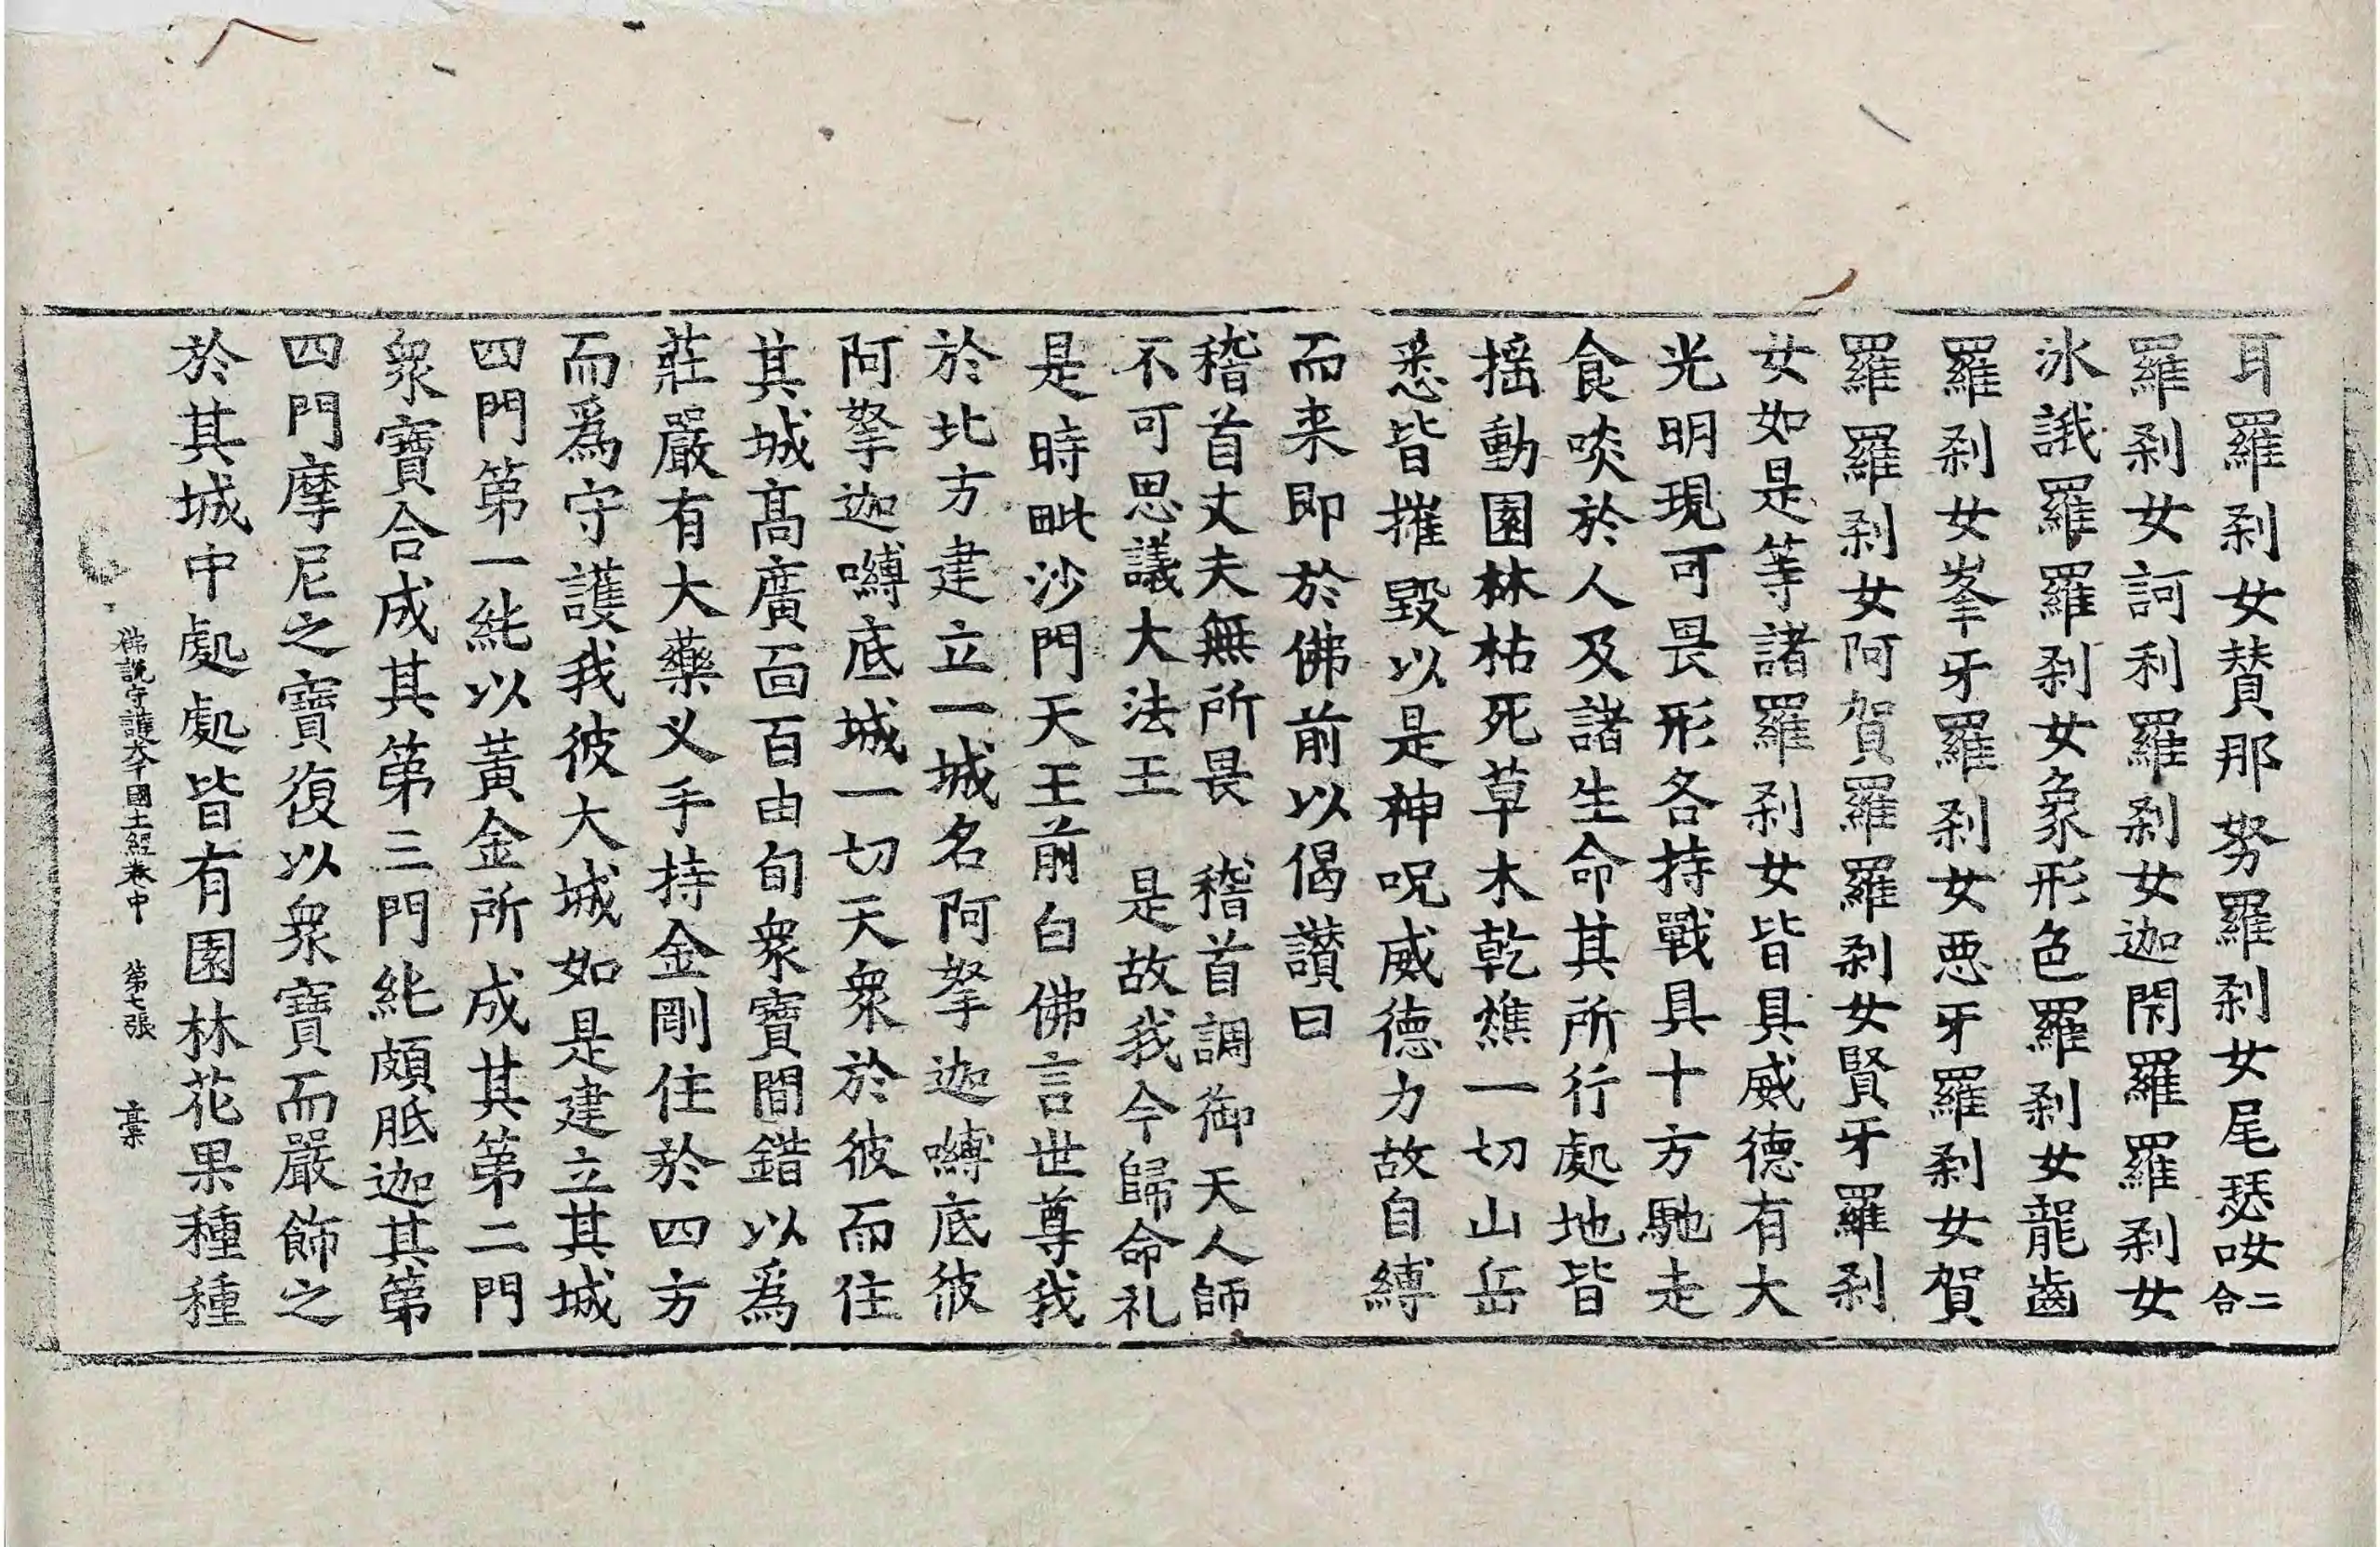 耳羅剎女賛那努羅剎女尾瑟㚢二合
羅剎女訶利羅剎女迦閇羅羅剎女
冰誐羅羅剎女象形色羅剎女龍齒
羅剎女峯牙羅剎女悪牙羅剎女賀
羅羅剎女阿賀羅羅剎女賢牙羅剎
女如是等諸羅剎女皆具威德有大
光明現可畏形各持戰具十方馳走
食啖於人及諸生命其所行處地皆
揺動園林枯死草木乾燋一切山岳
悉皆摧毀以是神呪威德力故自縛
而来即於佛前以偈讚曰
稽首丈夫無所畏　稽首調御天人師
不可思議大法王　是故我今歸命礼
是時毗沙門天王前白佛言世尊我
於北方建立一城名阿拏迦嚩底彼
阿拏迦嚩底城一切天衆於彼而住
其城髙廣面百由旬衆寶間錯以爲
莊嚴有大藥叉手持金剛住於四方
而爲守護我彼大城如是建立其城
四門第一純以黃金所成其第二門
衆寶合成其第三門純頗胝迦其第
四門摩尼之寶復以衆寶而嚴飾之
於其城中處處皆有園林花果種種
佛説守護大千國土經卷中　第七張　槀